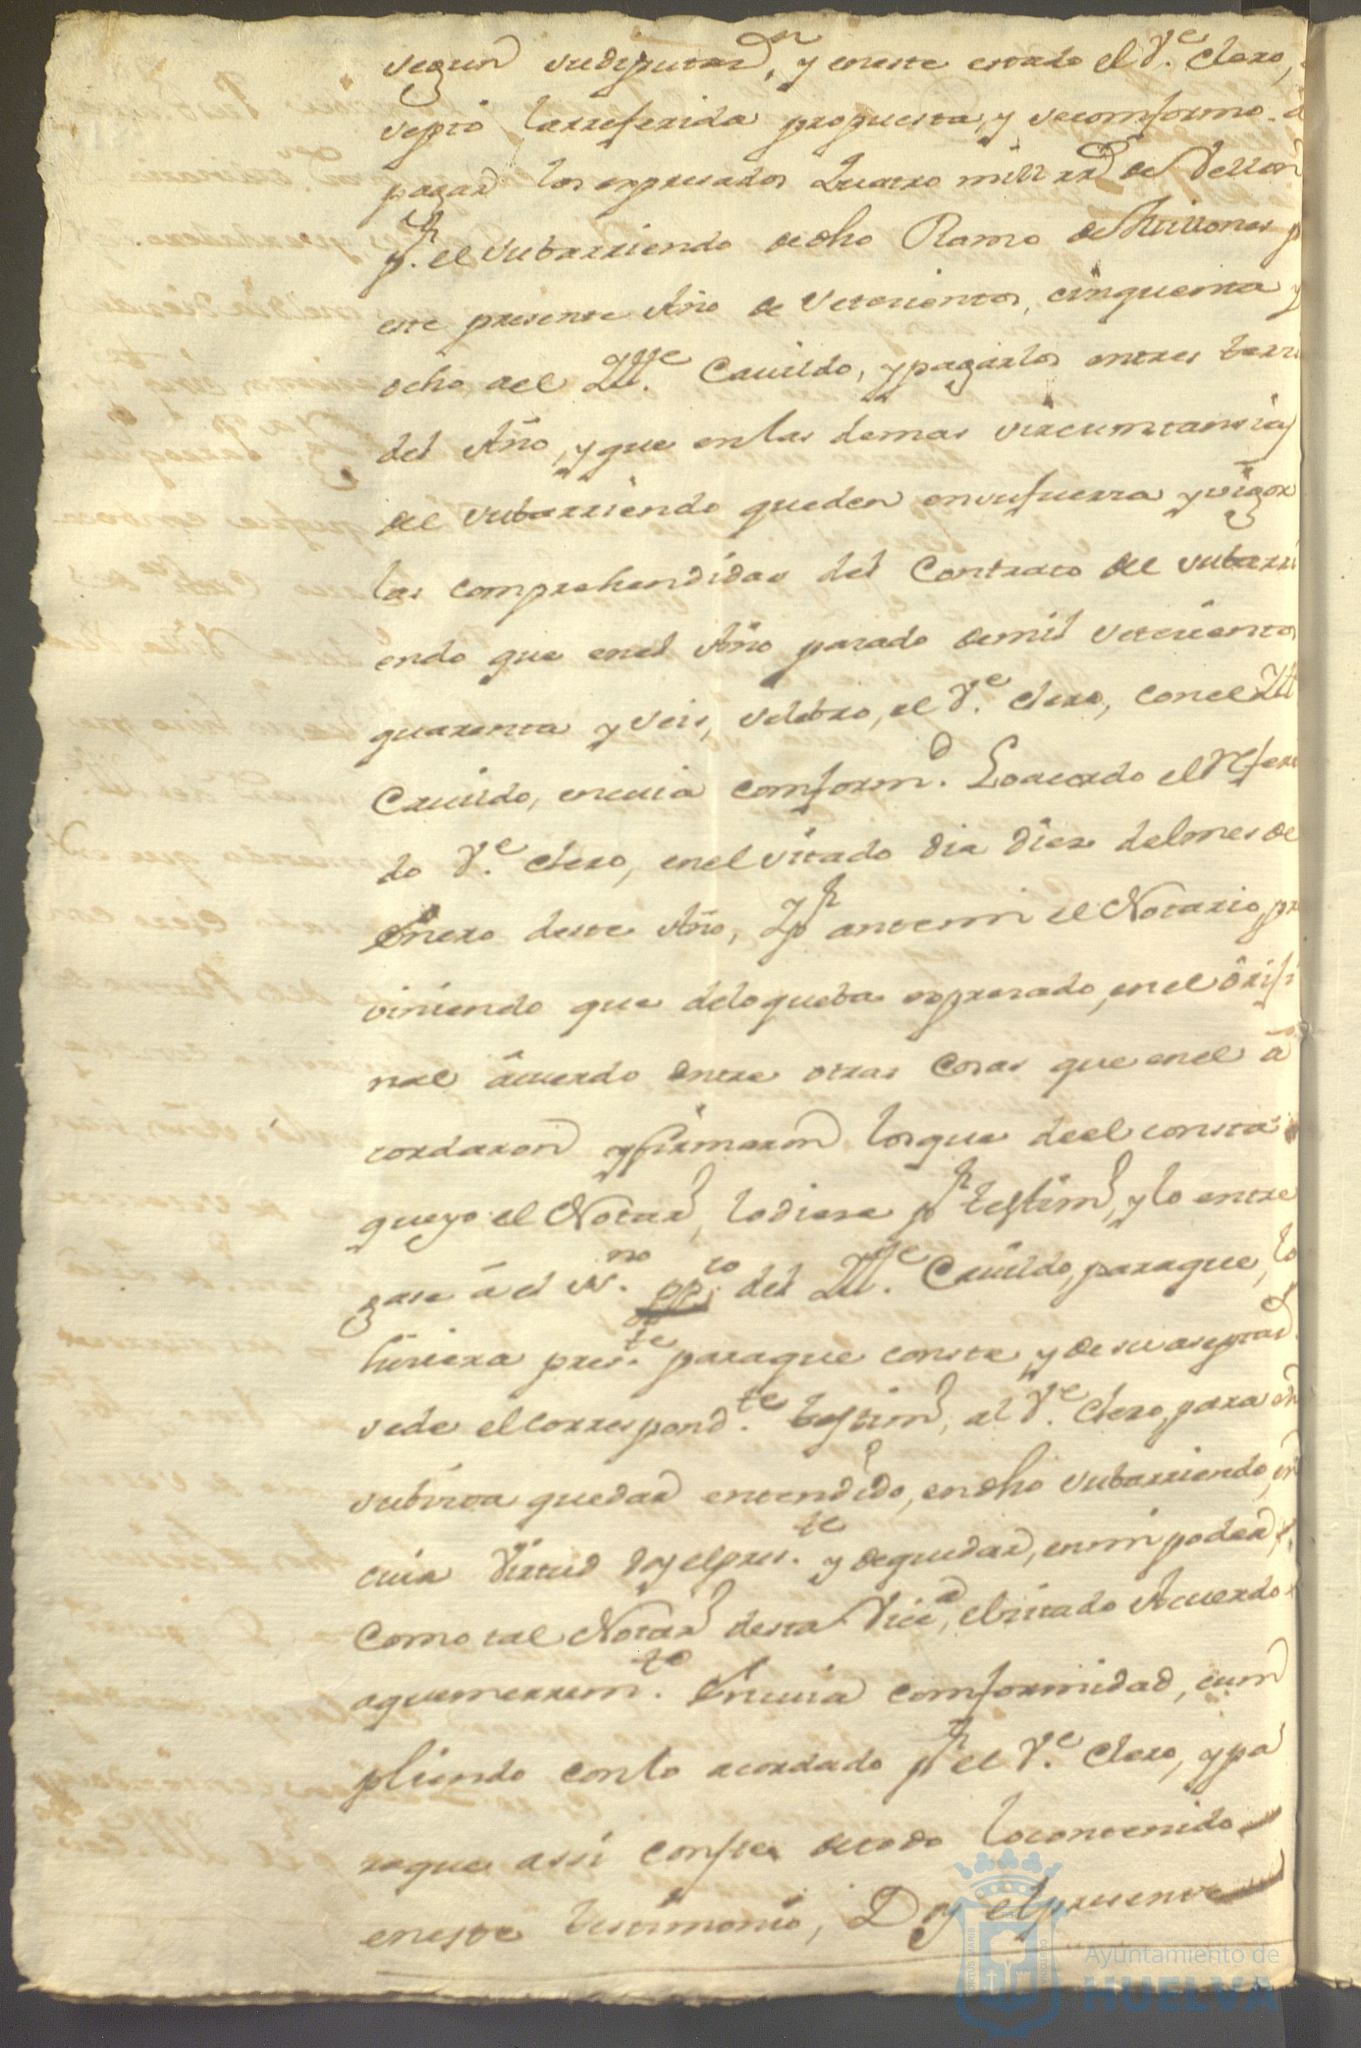 segun su diputaⁿ, y eneste estado el Vᵉ. Clero,
septo larreferida propuesta, y seconformo
pagar los expresados Quatro mill rrˢ de Vellon
pʳ. el subarriendo dedho Ramo de Millones p
este presente Año de setesientos, cinquenta y
ocho, ael Illᵉ. Cauildo, ypagarlos entres terzi
del Año, y que enlas demas sircumstansias
del subarriendo queden ensufuersa yvigor
las comprehendidas del Contrato del subarri
endo que enel Año pasado demil setesientos
quarenta y seis, selebro, el Vᵉ. Clero, conel Ill
Cauildo, encuia comformᵈ. Loacordo el Refexi
do Vᵉ. Clero, enel sitado dia diez delmes de
Enero deste Año, Ipʳ antemi el Notario, pre
viniendo que deloqueba expresado, enel órigi
nal ácuerdo entre otras Cosas que enel á
cordaron yfirmaron losque deel consta
queyo el Notarº, lodiese pʳ testimº, y lo entre
gase á el Ssⁿᵒ. ppᶜᵒ. del Illᵉ. Cauildo, paraque, lo
hisiera presᵗᵉ. paraque conste, y desuaseptasⁿ
sede elcorrespondᵗᵉ. testimº, al Vᵉ. Clero, para en
subista quedar entendido, endho subarriendo, en
cuia Virtud doy elpresᵗᵉ. y dequedar, enmi poder,
Como tal Notarº desta Vicᵃ, elsitado Acuerdo
aquemerremᵗᵒ. Encuia conformidad, cum
pliendo conlo acordado pʳ el Vᵉ. Clero, ypa
raque assi conste detodo locontenido
eneste testimonio, Doy elpresente
Ayuntamiento de
HUELVA